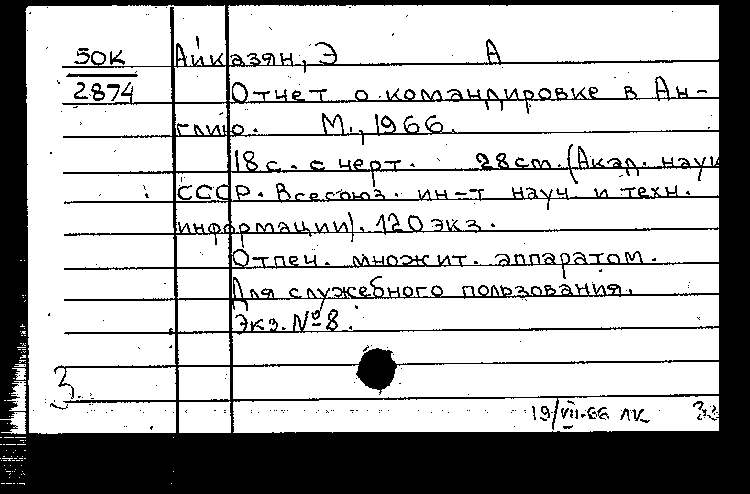 50К Айказян, Э А
2874 Отчет о командировке в Ан-
глию. М., 1966.
18с. с черт. 28см. (Акад. наук
СССР. Всесоюз. ин-т науч. и техн.
информации). 120 экз.
Отпеч. множит. аппаратом.
Для служебного пользования.
Экз. № 8.
3
19/VII-66 ЛК 33